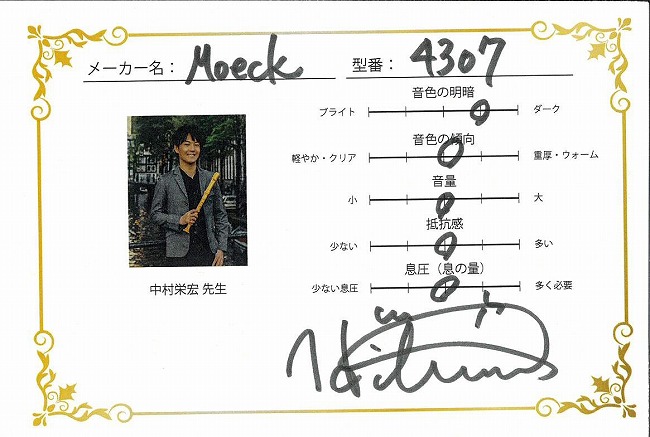 メーカー名： Moeck
型番： 4307
音色の明暗
ブライト ダーク
音色の傾向
軽やか・クリア 重厚・ウォーム
音量
小 大
抵抗感
少ない 多い
息圧（息の量）
少ない息圧 多く必要
中村栄宏 先生